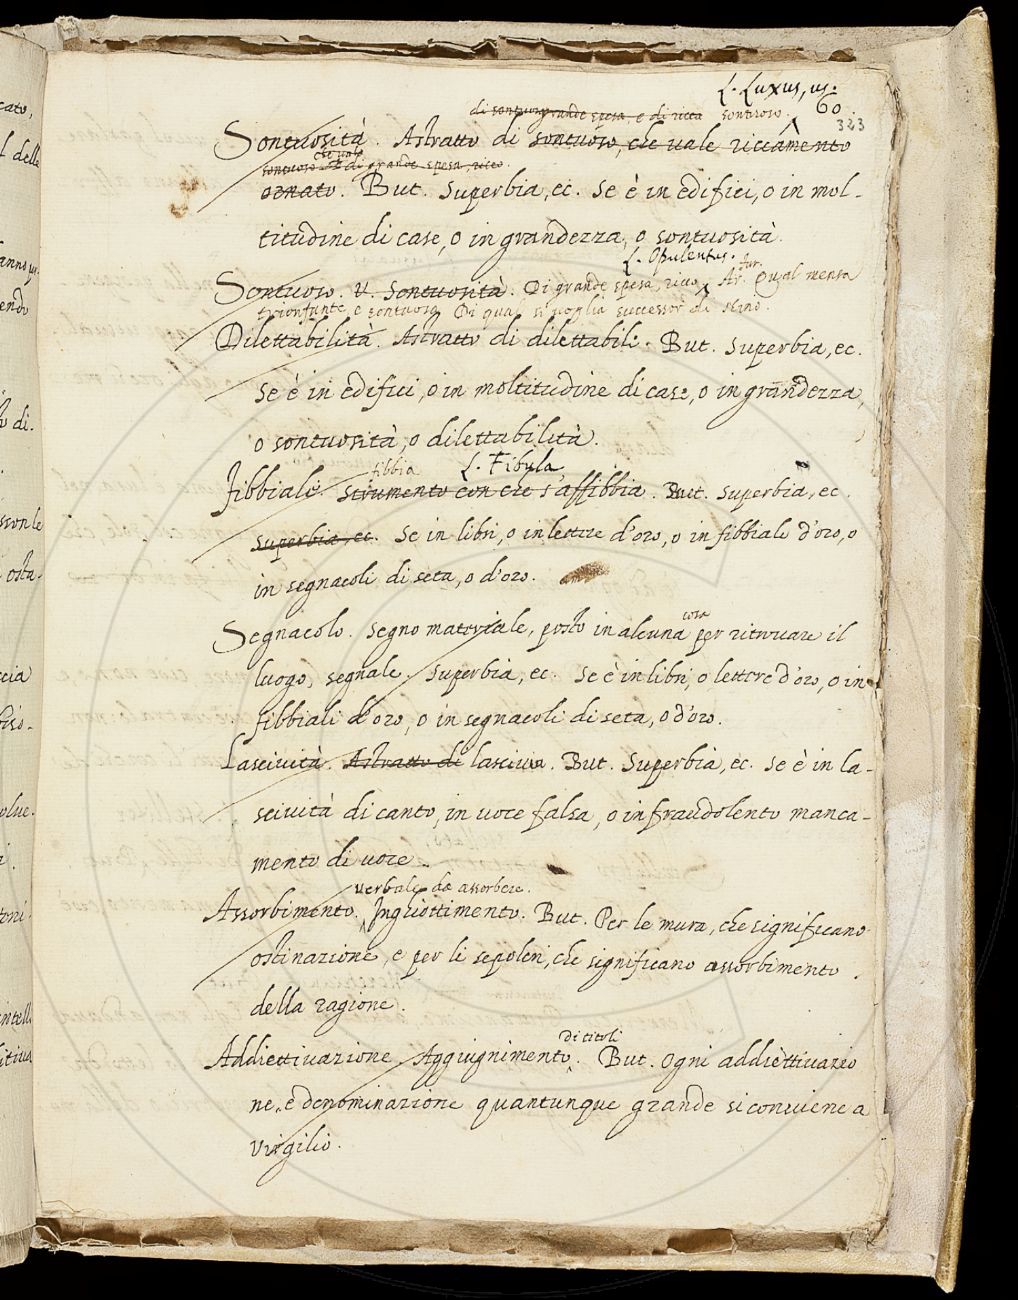 L. Luxus, us.
60
323
di sontuos grande spesa e di ricca sontuoso.
Sontuosità. Astratto di sontuoso, che vale riccamente
che vale
sontuoso di grande spesa, ricco.
ornato. But. Superbia, ec. Se è in edifici, o in mol-
titudine di case, o in grandezza, o sontuosità.
L. Opulentus.
Sontuoso. V. Sontuosità. Di grande spesa, ricco. Ar. fur. Qual mensa
trionfante e sontuosa Di qual si voglia successor di Nino.
Dilettabilità. Astratto di dilettabile. But. Superbia, ec.
Se è in edifici, o in moltitudine di case, o in grandezza,
o sontuosità, o dilettabilità.
fibbia L. Fibula
Fibbiale. Strumento con che s'affibbia. But. Superbia, ec.
Superbia, ec. Se in libri, o in lettere d'oro, o in fibbiale d'oro, o
in segnacoli di seta, o d'oro.
Segnacolo. Segno materiale, posto in alcuna cosa per ritrovare il
luogo, segnale. Superbia, ec. Se è in libri, o lettere d'oro, o in
fibbiali d'oro, o in segnacoli di seta, o d'oro.
Lascività. Astratto di lasciva. But. Superbia, ec. Se è in la-
scività di canto, in voce falsa, o in fraudolento manca-
mento di voce.
verbale da assorbere.
Assorbimento. Inghiottimento. But. Per le mura, che significano
ostinazione, e per li sepolcri, che significano assorbimento
della ragione.
di titoli
Addiettivazione Aggiugnimento. But. Ogni addiettivazio
ne, e denominazione quantunque grande si conviene a
Virgilio.